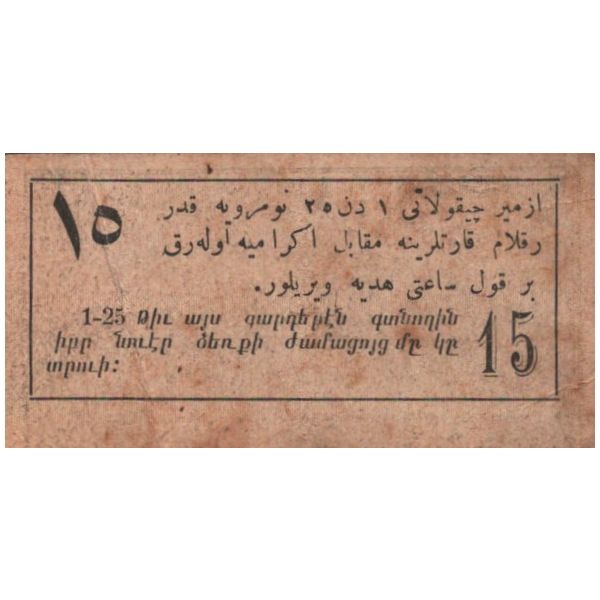 ١٥
ازمير چيقولاتى ١ دن ٢٥ نومرويه قدر
رقلام قارتلرينه مقابل اكراميه اوله‌رق
بر قول ساعتى هديه ويريلور.
1-25 Թիւ այս գարդերէն գտնողին
իբր նուէր ձեռքի ժամացոյց մը կը
տրուի:
15